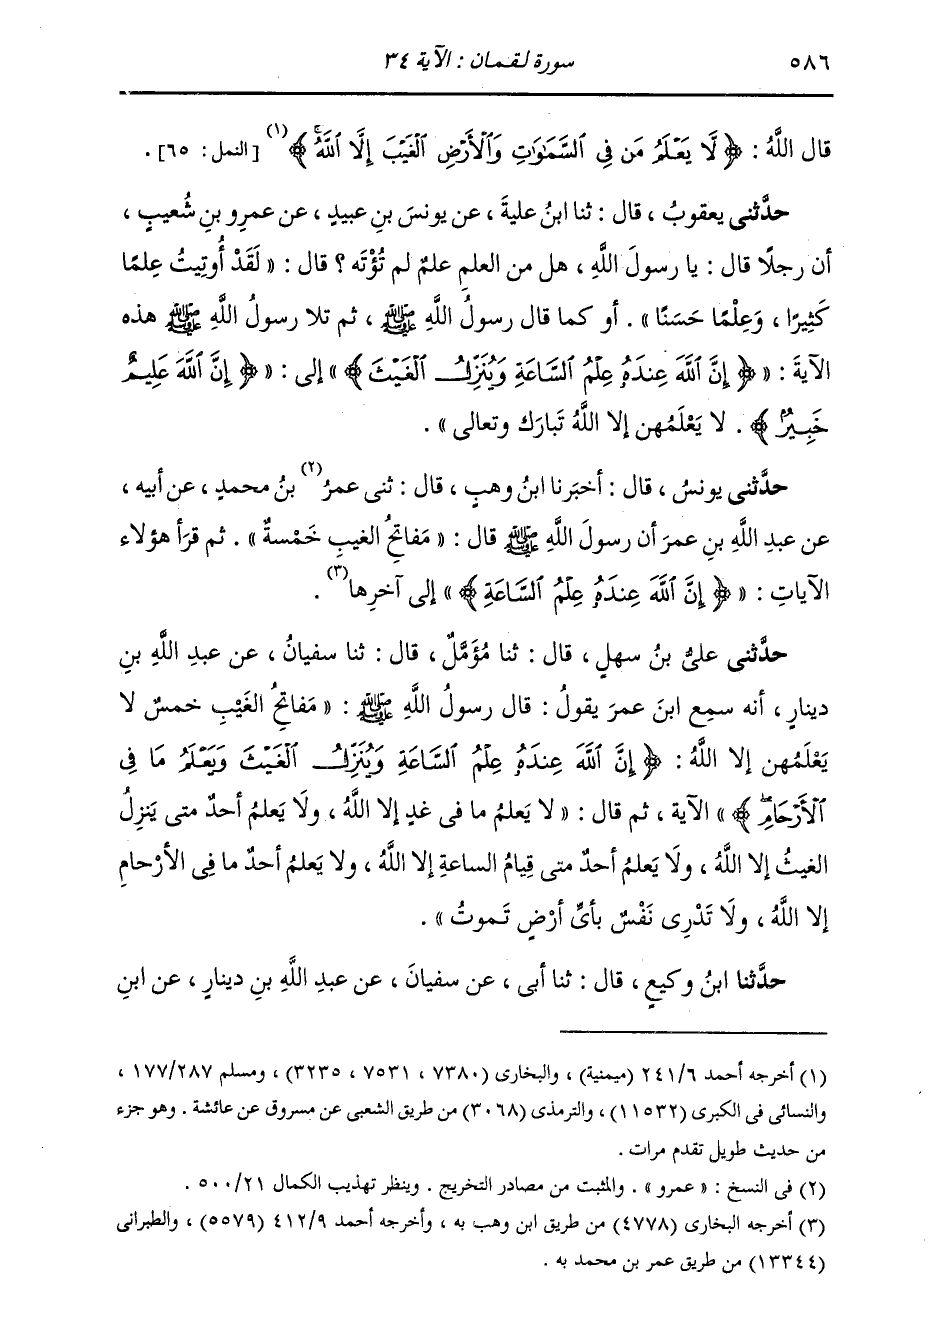 ٥٨٦ سورة لقمان : الآية ٣٤
قال اللَّهُ : ﴿ لَّا يَعْلَمُ مَن فِي ٱلسَّمَٰوَٰتِ وَٱلْأَرْضِ ٱلْغَيْبَ إِلَّا ٱللَّهُۚ ﴾(١) [النمل : ٦٥] .
حدَّثنى يعقوبُ ، قال : ثنا ابنُ عليةَ ، عن يونسَ بنِ عبيدٍ ، عن عمرِو بنِ شُعيبٍ ،
أن رجلًا قال : يا رسولَ اللَّهِ ، هل من العلمِ علمٌ لم تُؤْتَه ؟ قال : « لَقَدْ أُوتِيتُ عِلمًا
كَثِيرًا ، وَعِلْمًا حَسَنًا » . أو كما قال رسولُ اللَّهِ ﷺ ، ثم تلا رسولُ اللَّهِ ﷺ هذه
الآيةَ : « ﴿ إِنَّ ٱللَّهَ عِندَهُۥ عِلْمُ ٱلسَّاعَةِ وَيُنَزِّلُ ٱلْغَيْثَ ﴾ » إلى : « ﴿ إِنَّ ٱللَّهَ عَلِيمٌ
خَبِيرٌۢ ﴾ . لا يَعْلَمُهن إلا اللَّهُ تَبارَك وتعالى » .
حدَّثنى يونسُ ، قال : أخبَرنا ابنُ وهبٍ ، قال : ثنى عمرُ(٢) بنُ محمدٍ ، عن أبيه ،
عن عبدِ اللَّهِ بنِ عمرَ أن رسولَ اللَّهِ ﷺ قال : « مَفاتحُ الغيبِ خَمْسةٌ » . ثم قرَأ هؤلاء
الآياتِ : « ﴿ إِنَّ ٱللَّهَ عِندَهُۥ عِلْمُ ٱلسَّاعَةِ ﴾ » إلى آخرِها(٣) .
حدَّثنى علىُّ بنُ سهلٍ ، قال : ثنا مُؤَمَّلٌ ، قال : ثنا سفيانُ ، عن عبدِ اللَّهِ بنِ
دينارٍ ، أنه سمِع ابنَ عمرَ يقولُ : قال رسولُ اللَّهِ ﷺ : « مَفاتحُ الغَيْبِ خمسٌ لا
يَعْلَمُهن إلا اللَّهُ : ﴿ إِنَّ ٱللَّهَ عِندَهُۥ عِلْمُ ٱلسَّاعَةِ وَيُنَزِّلُ ٱلْغَيْثَ وَيَعْلَمُ مَا فِى
ٱلْأَرْحَامِۖ ﴾ » الآية ، ثم قال : « لا يَعلمُ ما فى غدٍ إلا اللَّهُ ، ولَا يَعلمُ أحدٌ متى يَنزِلُ
الغيثُ إلا اللَّهُ ، ولَا يَعلمُ أحدٌ متى قِيامُ الساعةِ إلا اللَّهُ ، ولا يَعلمُ أحدٌ ما فِى الأرْحامِ
إلا اللَّهُ ، ولَا تَدْرِى نَفْسٌ بأىِّ أرْضٍ تَموتُ » .
حدَّثنا ابنُ وكيعٍ ، قال : ثنا أبى ، عن سفيانَ ، عن عبدِ اللَّهِ بنِ دينارٍ ، عن ابنِ
(١) أخرجه أحمد ٢٤١/٦ (ميمنية) ، والبخارى (٧٣٨٠ ، ٧٥٣١ ، ٣٢٣٥) ، ومسلم ١٧٧/٢٨٧ ،
والنسائى فى الكبرى (١١٥٣٢) ، والترمذى (٣٠٦٨) من طريق الشعبى عن مسروق عن عائشة . وهو جزء
من حديث طويل تقدم مرات .
(٢) فى النسخ : « عمرو » . والمثبت من مصادر التخريج . وينظر تهذيب الكمال ٥٠٠/٢١ .
(٣) أخرجه البخارى (٤٧٧٨) من طريق ابن وهب به ، وأخرجه أحمد ٤١٢/٩ (٥٥٧٩) ، والطبرانى
(١٣٣٤٤) من طريق عمر بن محمد به .